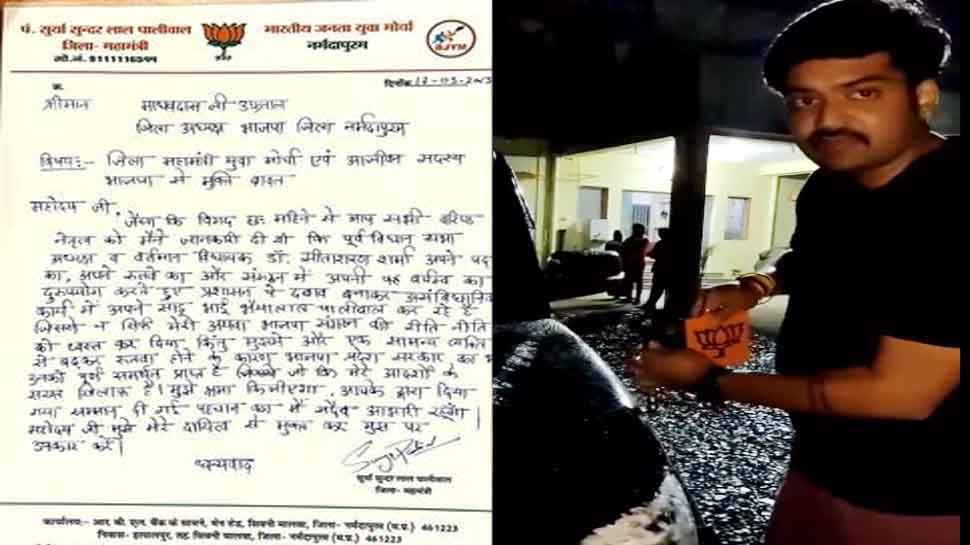 पं. सूर्या सुन्दर लाल पालीवाल
जिला- महामंत्री
मो.नं.
भारतीय जनता युवा मोर्चा
नर्मदापुरम
BJYM
क्र.
दिनाँक
श्रीमान माधवदास जी अग्रवाल
जिला अध्यक्ष भाजपा जिला नर्मदापुरम
विषय:- जिला महामंत्री युवा मोर्चा एवं आजीवन सदस्य
भाजपा से मुक्ति बाबत
महोदय जी,
जैसा कि विगत छः महिने में आप सभी वरिष्ठ
नेतृत्व को मैंने जानकारी दी थी कि पूर्व विधान सभा
अध्यक्ष व वर्तमान विधायक डॉ. सीताशरण शर्मा अपने पद
का, अपने रुतबे का और संगठन में अपनी का
दुरुपयोग करते हुए प्रशासन पे दबाव बनाकर असंविधानिक
कार्य में अपने साढू भाई पालीवाल कर रहे है
जिससे न सिर्फ मेरी अथवा भाजपा संगठन की रीति नीति
को ध्वस्त कर दिया, किंतु मुझसे और एक सामान्य व्यक्ति
से बढ़कर रुतबा होने के कारण भाजपा प्रदेश सरकार का
उनको पूर्ण समर्थन प्राप्त है जो कि मेरे आदर्शो के
सख्त खिलाफ है। मुझे क्षमा किजीएगा, आपके द्वारा दिया
गया सम्मान, दी गई पहचान का मैं सदैव आभारी रहूंगा।
महोदय जी मुझे मेरे दायित्व से मुक्त कर मुझ पर
उपकार करें।
धन्यवाद
सूर्या सुन्दर लाल पालीवाल
जिला- महामंत्री
कार्यालय:- आर. सी. एल. बैंक के सामने, मेन रोड, सिवनी मालवा, जिला- नर्मदापुरम (म.प्र.) 461223
निवास- तह. सिवनी मालवा, जिला- नर्मदापुरम (म.प्र.) 461223